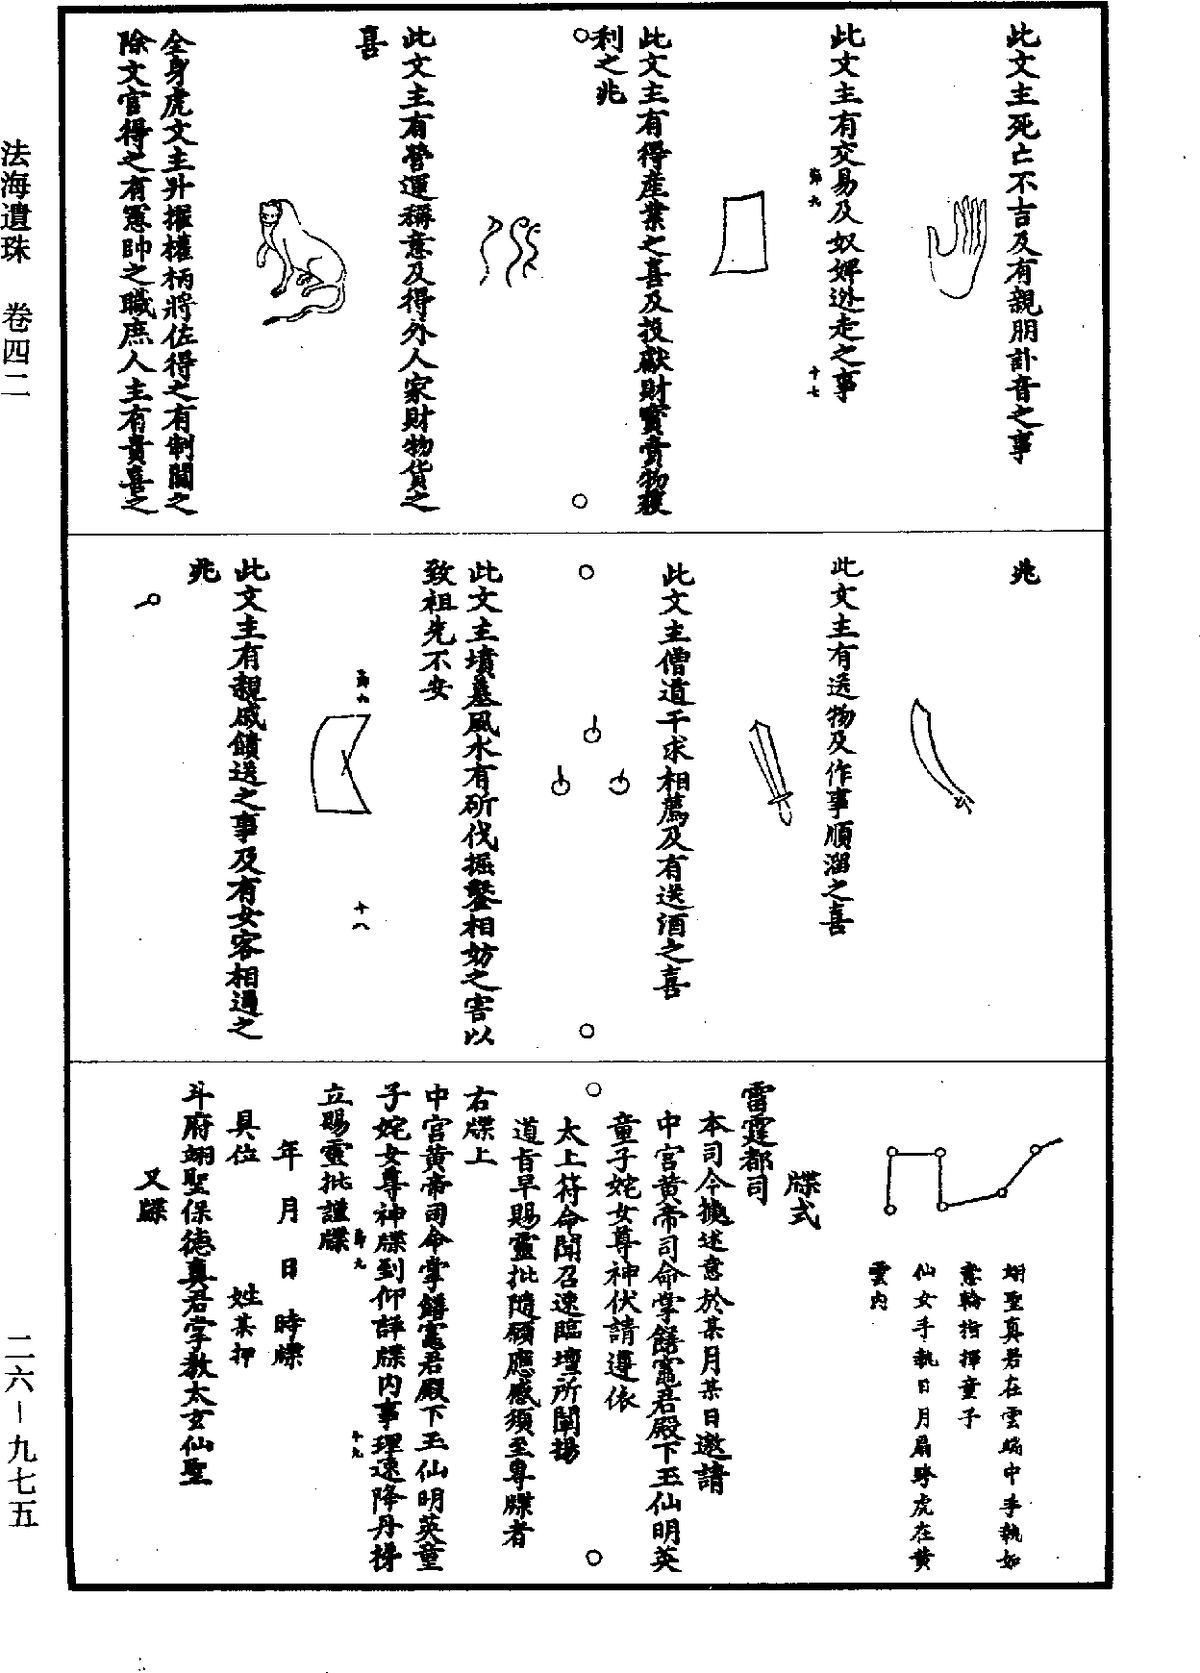 此文主死亡不吉及有親朋訃音之事
此文主有交易及奴婢迯走之事
第九 十七
此文主有得產業之喜及投獻財寶賣物獲
利之兆
此文主有營運稱意及得外人家財物貨之
喜
全身虎文主升擢權柄將佐得之有制閫之
除文官得之有憲帥之職庶人主有貴喜之
兆
此文主有送物及作事順溜之喜
此文主僧道干求相薦及有送酒之喜
此文主墳墓風水有斫伐掘鑿相妨之害以
致祖先不安
第九 十八
此文主有親戚饋送之事及有女客相過之
兆
翊聖真君在雲端中手執如
意輪指揮童子
仙女手執日月扇跨虎在黃
雲內
牒式
雷霆都司
本司今據述意於某月某日邀請
中宮黃帝司命掌饍竈君殿下玉仙明英
童子姹女尊神伏請遵依
太上符命聞召速臨壇所闡揚
道旨早賜靈批隨願應感須至專牒者
右牒上
中宮黃帝司命掌饍竈君殿下玉仙明英童
子姹女尊神牒到仰詳牒內事理速降丹掃
第九 十九
立賜靈批謹牒
年 月 日 時牒
具位 姓某押
斗府翊聖保德真君掌教太玄仙聖
又牒
法海遺珠 卷四二
二六－九七五